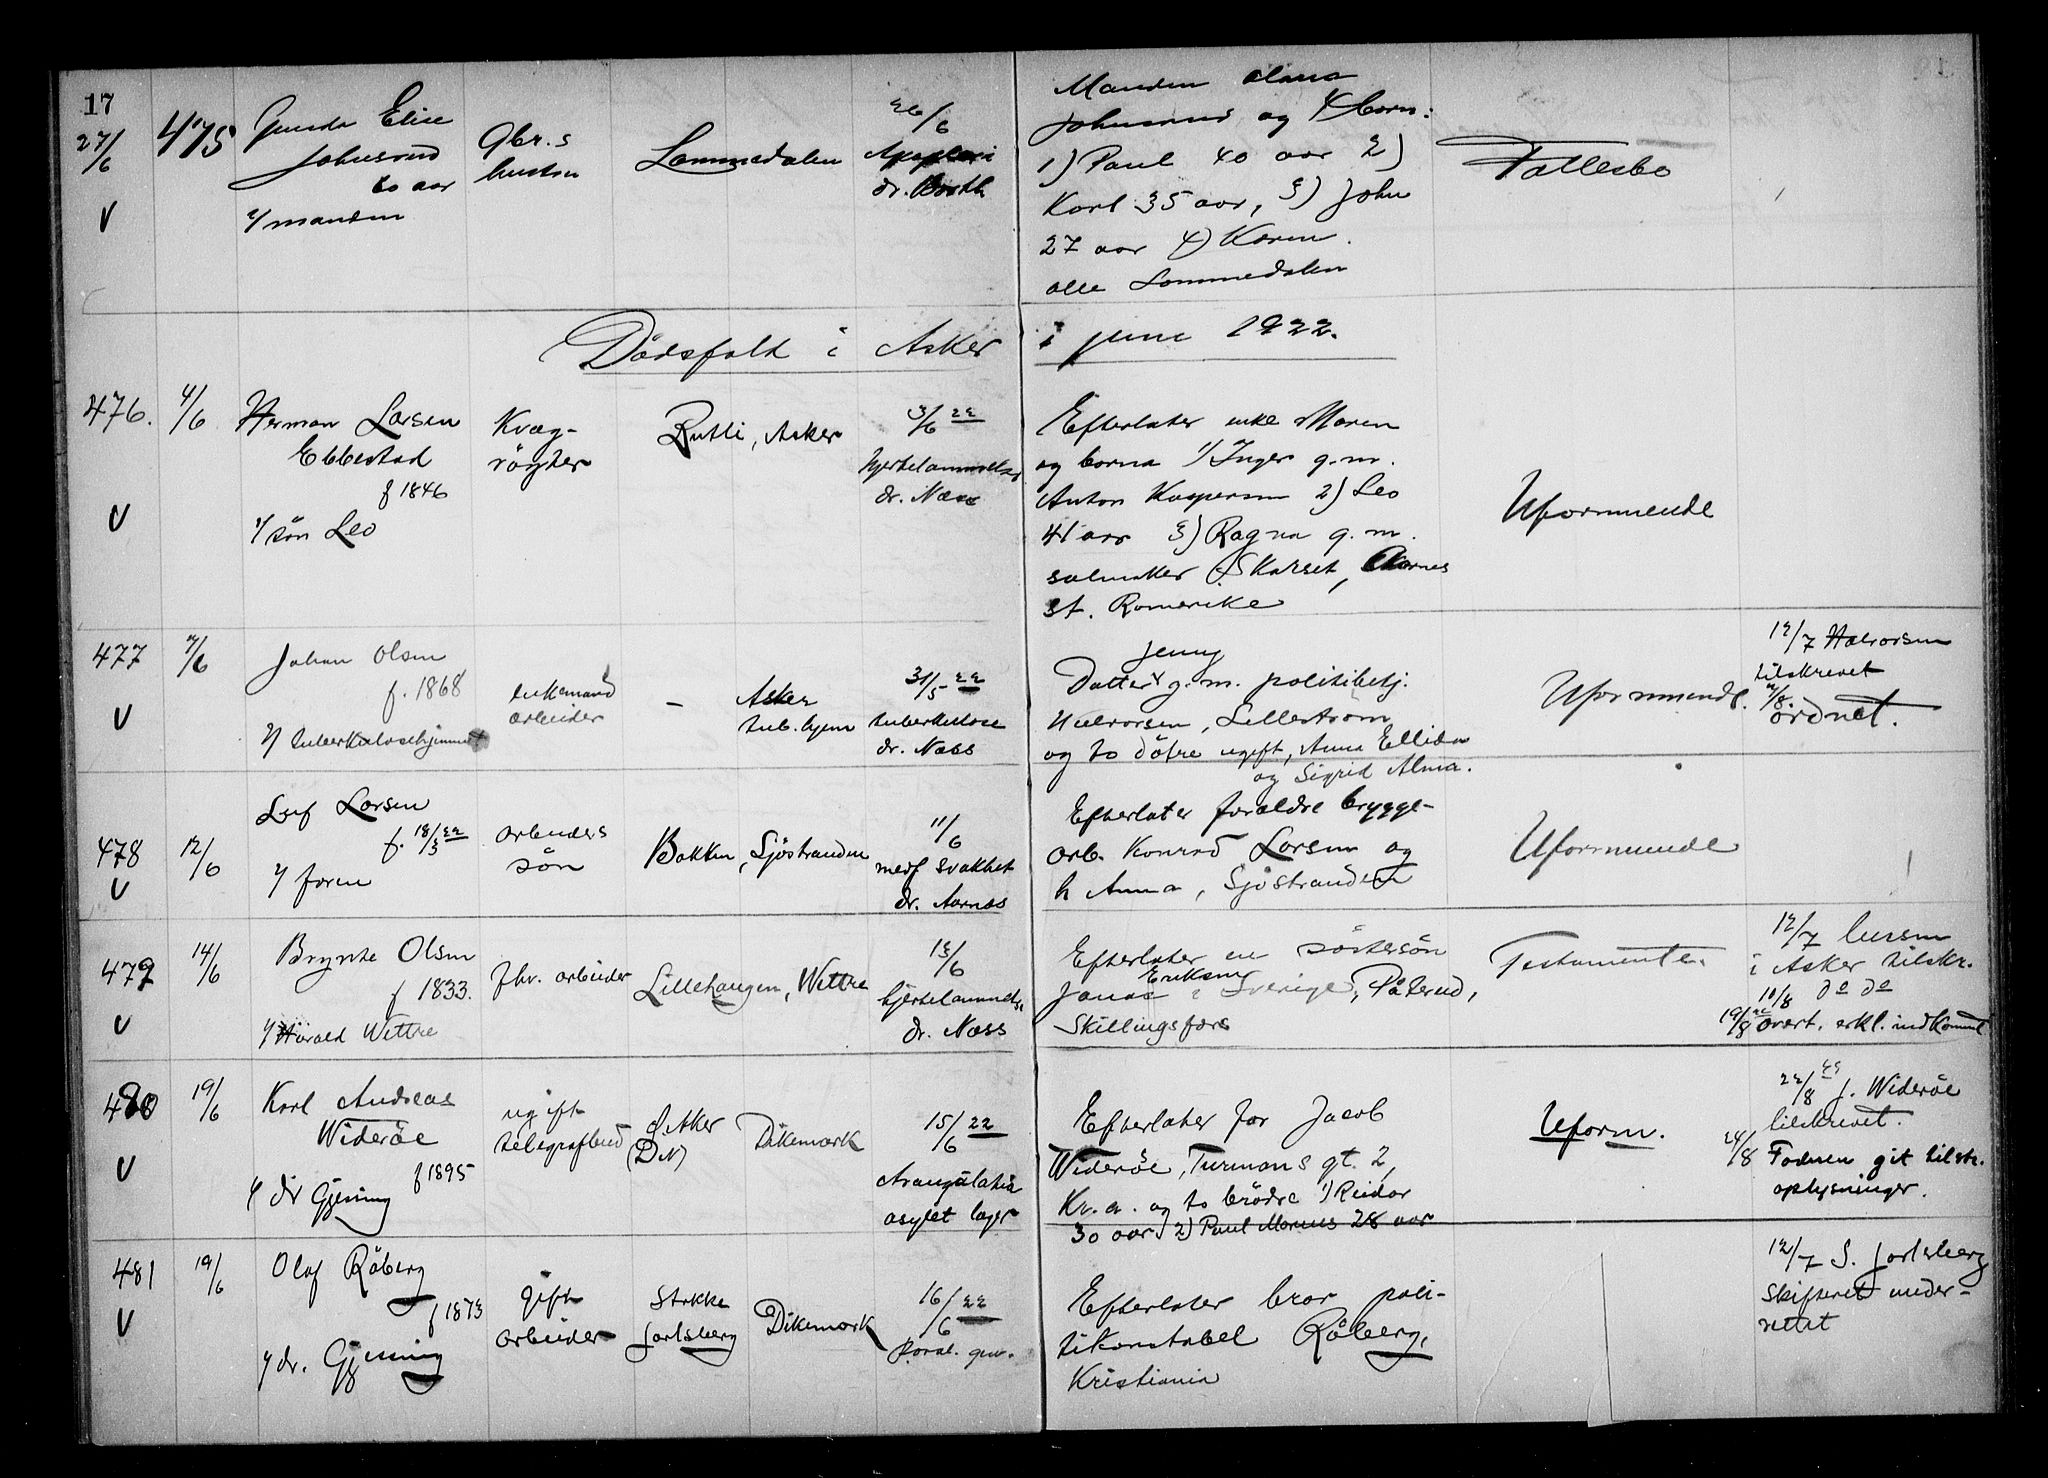 17
27/6
475
Gunda Elise
Johnsrud
60 aar
v/ manden
Gbr.s
hustru
Lommedalen
26/6
Apoplexi
dr. Barth
Manden
Johnsrud og 4 børn:
1) Paul 40 aar 2)
Karl 35 aar, 3) John
27 aar 4) Karen.
alle Lommedalen
Fællesbo
V
Dødsfald i Asker i juni 1922.
476.
4/6
Herman Larsen
Ebbestad
f 1846
v/ søn Leo
Kvæg-
røgter
Rustli, Asker
3/6 22
hjertelammelse
dr. Næss
Efterlater enke Maren
og barna 1/ Inger g.m.
Anton Kaspersen 2) Leo
41 aar 3) Ragna g.m.
salmaker Skarset, Aarnes
st. Romerike
Uformuende
V
477
7/6
Johan Olsen
f. 1868
v/ tuberkulosehjemmet
enkemand
arbeider
-
Asker
tub. hjem
31/5 22
tuberkulose
dr. Næss
Jenny
Datter g.m. politibetj.
Halvorsen, Lillestrøm
og to døtre ugift, Anna Ellida
og Sigrid Alma.
Uformuende.
12/7 Halvorsen
tilskrevet
/8. ordnet.
V
478
12/6
Leif Larsen
f. 18/3 22
v/ faren
arbeiders
søn
Bakken, Sjøstranden
11/6
medf svakhet
dr. Aarnæs
Efterlater forældre brygge-
arb. Konrad Larsen og
h Anna, Sjøstranden
Uformuende
V
479
14/6
Brynte Olsen
f 1833.
v/ Harald Wettre
fhv. arbeider
Lillehaugen, Wettre
13/6
hjertelammelse
dr. Næss
Efterlater en søstersøn
Jonas Eriksen i Sverige, Påterud,
Skillingsfors
Testamente.
12/7 lensm
i Asker tilskr.
10/8 do do
19/8 22 overt. erkl. indkommet
V
480
19/6
Karl Andreas
Widerøe
f 1895
v/ dr Gjessing
ugift
telegrafbud
V. Aker
(DN)
Dikemark
15/6 22
strangulatio
asylet lager
Efterlater far Jacob
Widerøe, Turmans gt. 2,
Kr.a. og to brødre 1) Reidar
30 aar, 2) Paul Marius 28 aar
Uform.
22/8 22 J. Widerøe
tilskrevet.
24/8 Faderen git tilstr.
oplysninger.
V
481
19/6
Olaf Råberg
f 1873
v/ dr. Gjessing
gift
arbeider
Stokke
Jarlsberg
Dikemark
16/6 22
Paral. gen.
Efterlater bror poli-
tikonstabel Råberg,
Kristiania
12/7 S. Jarlsberg
skifteret under-
rettet
V